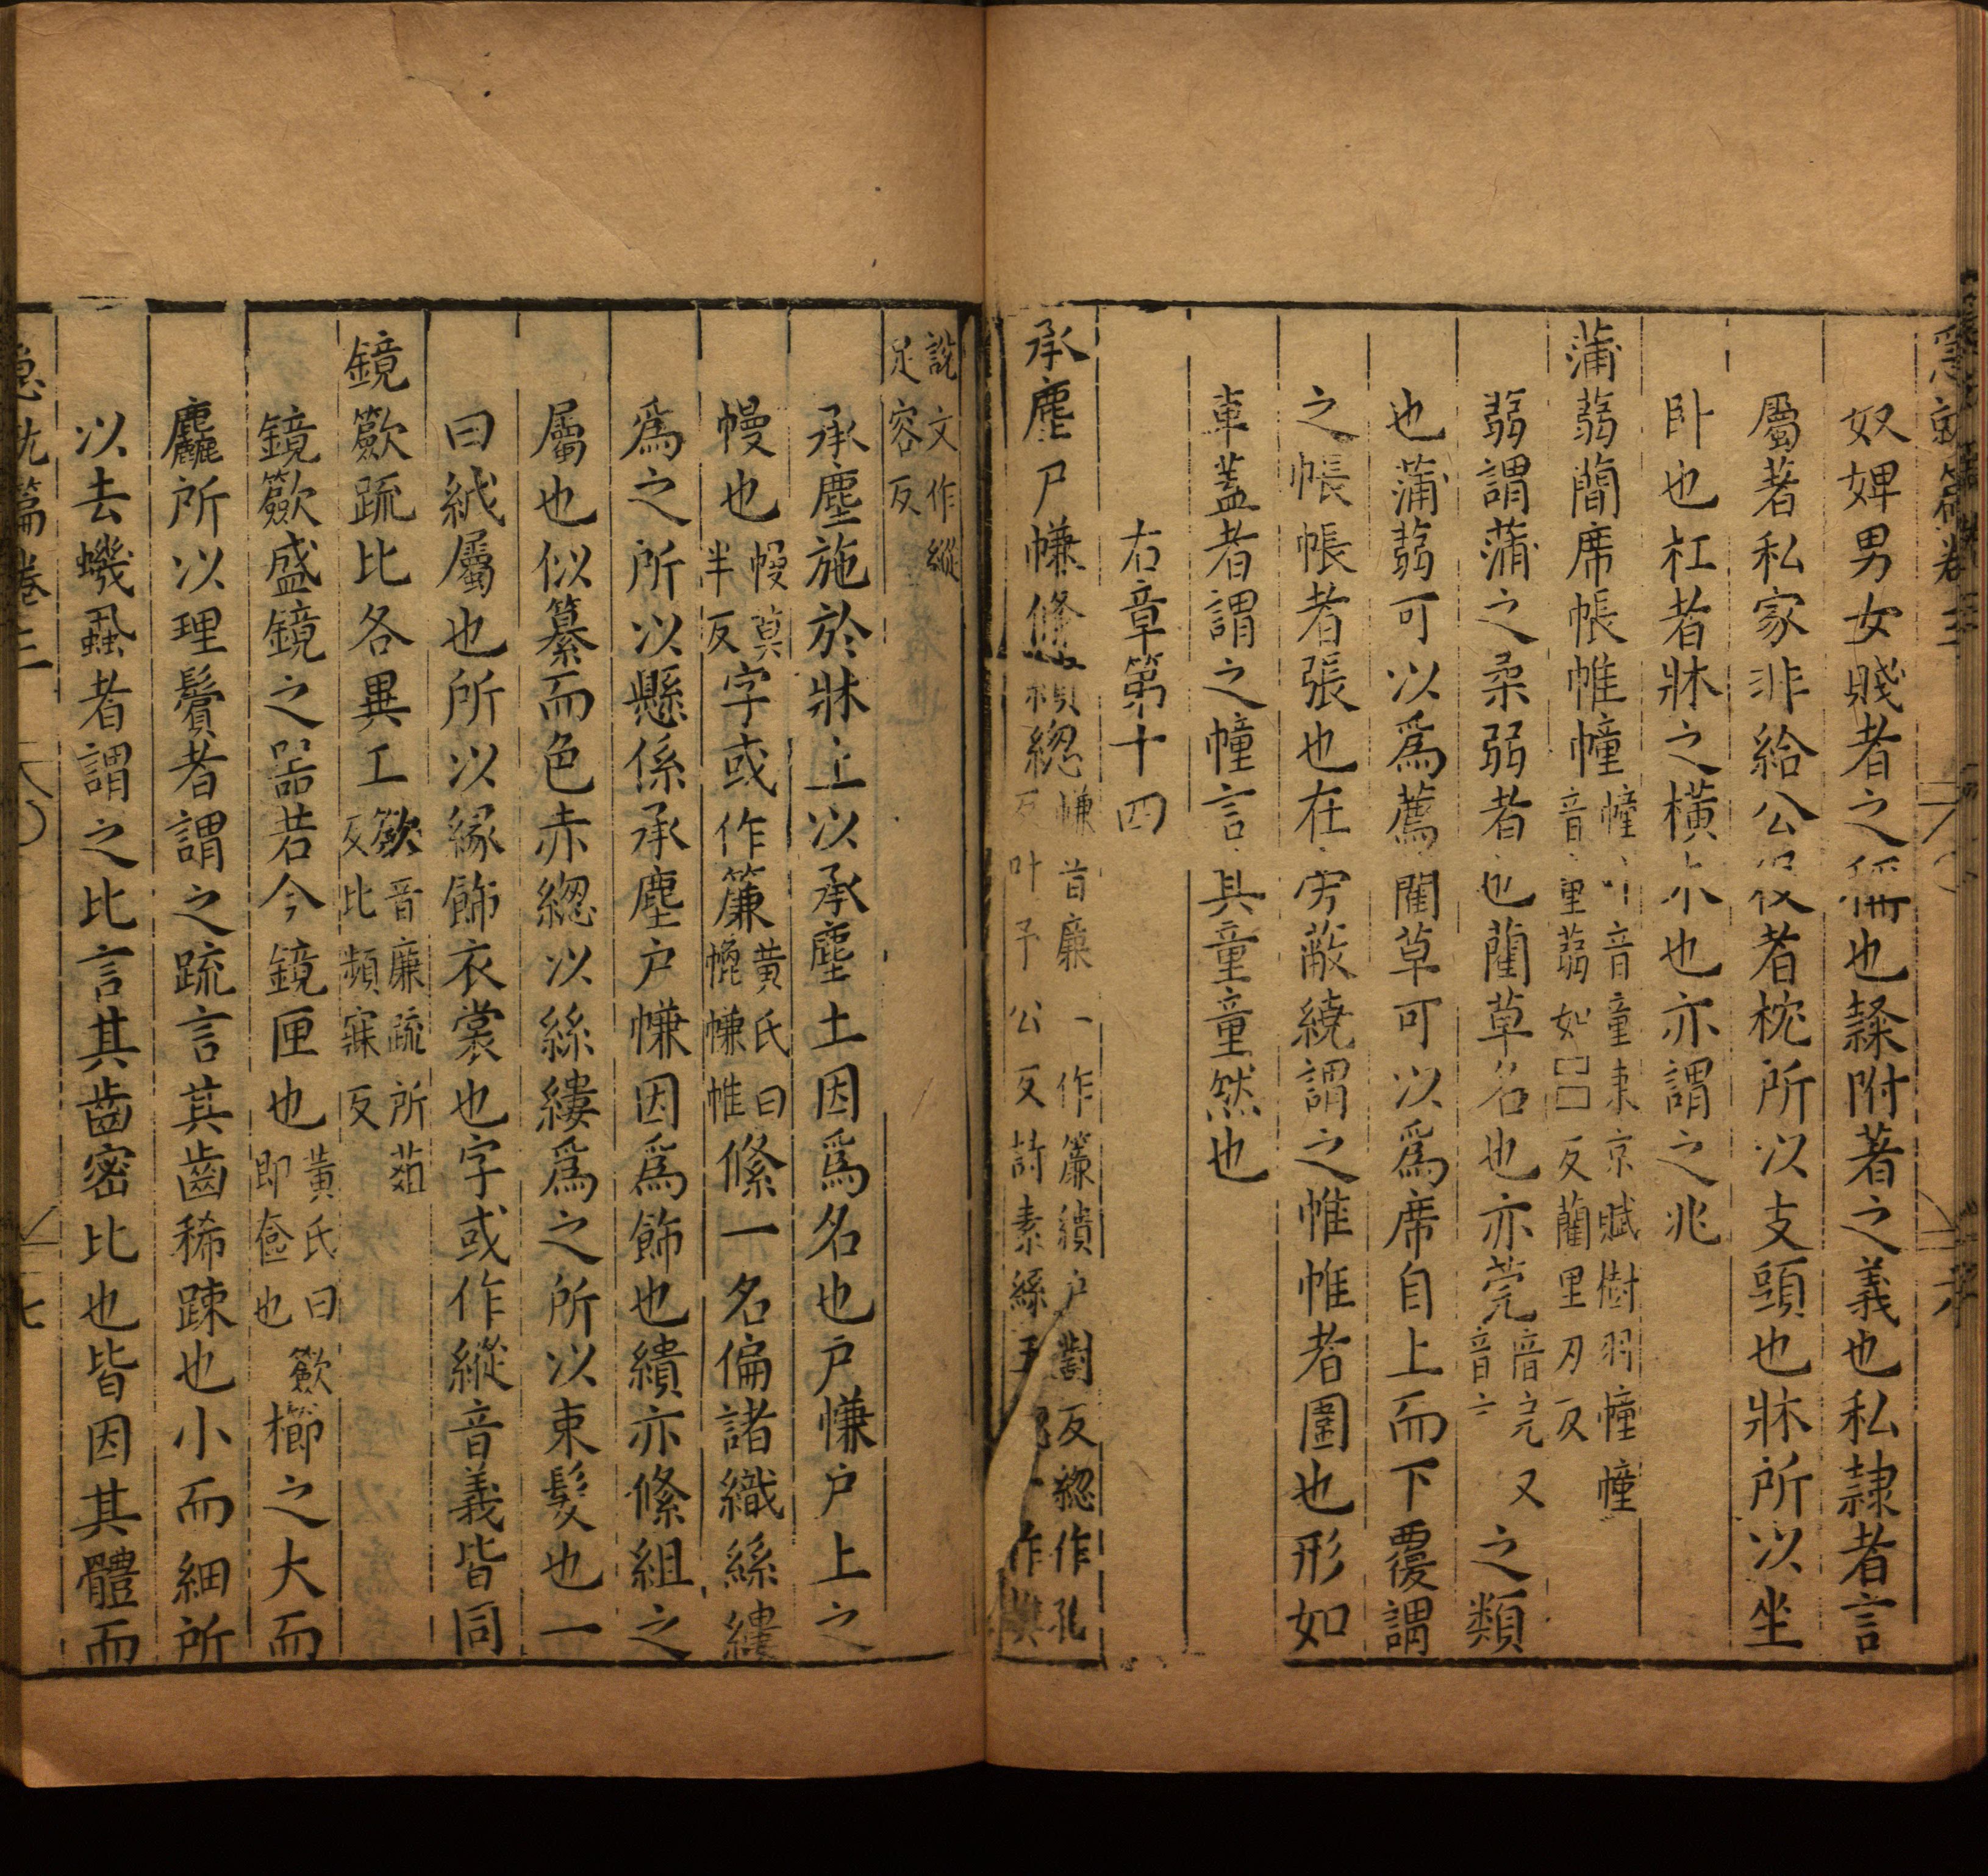 急就篇卷三 六
奴婢男女賤者之稱也隸附著之義也私隸者言
屬著私家非給公役者枕所以支頭也牀所以坐
臥也杠者牀之橫木也亦謂之兆
蒲蒻藺席帳帷幢
幢音童東京賦樹羽幢幢
音童蒻如□□反藺里刃反
蒻謂蒲之柔弱者也藺草名也亦莞
音完又
音之類
也蒲蒻可以爲薦藺草可以爲席自上而下覆謂
之帳帳者張也在旁蔽繞謂之帷帷者圍也形如
車蓋者謂之幢言其童童然也
右章第十四
承塵戶㡘絛繢緫
㡘音廉一作簾繢戶對反緫作孔
反叶子公反詩素絲五 一作
說文作縱
足容反
承塵施於牀上以承塵土因爲名也戶㡘戶上之
幔也
幔莫
半反
字或作簾
黃氏曰
㡘帷
絛一名偏諸織絲縷
爲之所以懸係承塵戶㡘因爲飾也繢亦絛組之
屬也似纂而色赤緫以絲縷爲之所以束髮也一
曰紩屬也所以緣飾衣裳也字或作縱音義皆同
鏡籢疏比各異工
籢音廉疏所葅
反比頻寐反
鏡籢盛鏡之器若今鏡匣也
黃氏曰籢
即奩也
櫛之大而
麤所以理鬢者謂之疏言其齒稀踈也小而細所
以去蟣蝨者謂之比言其齒密比也皆因其體而
急就篇卷三 七